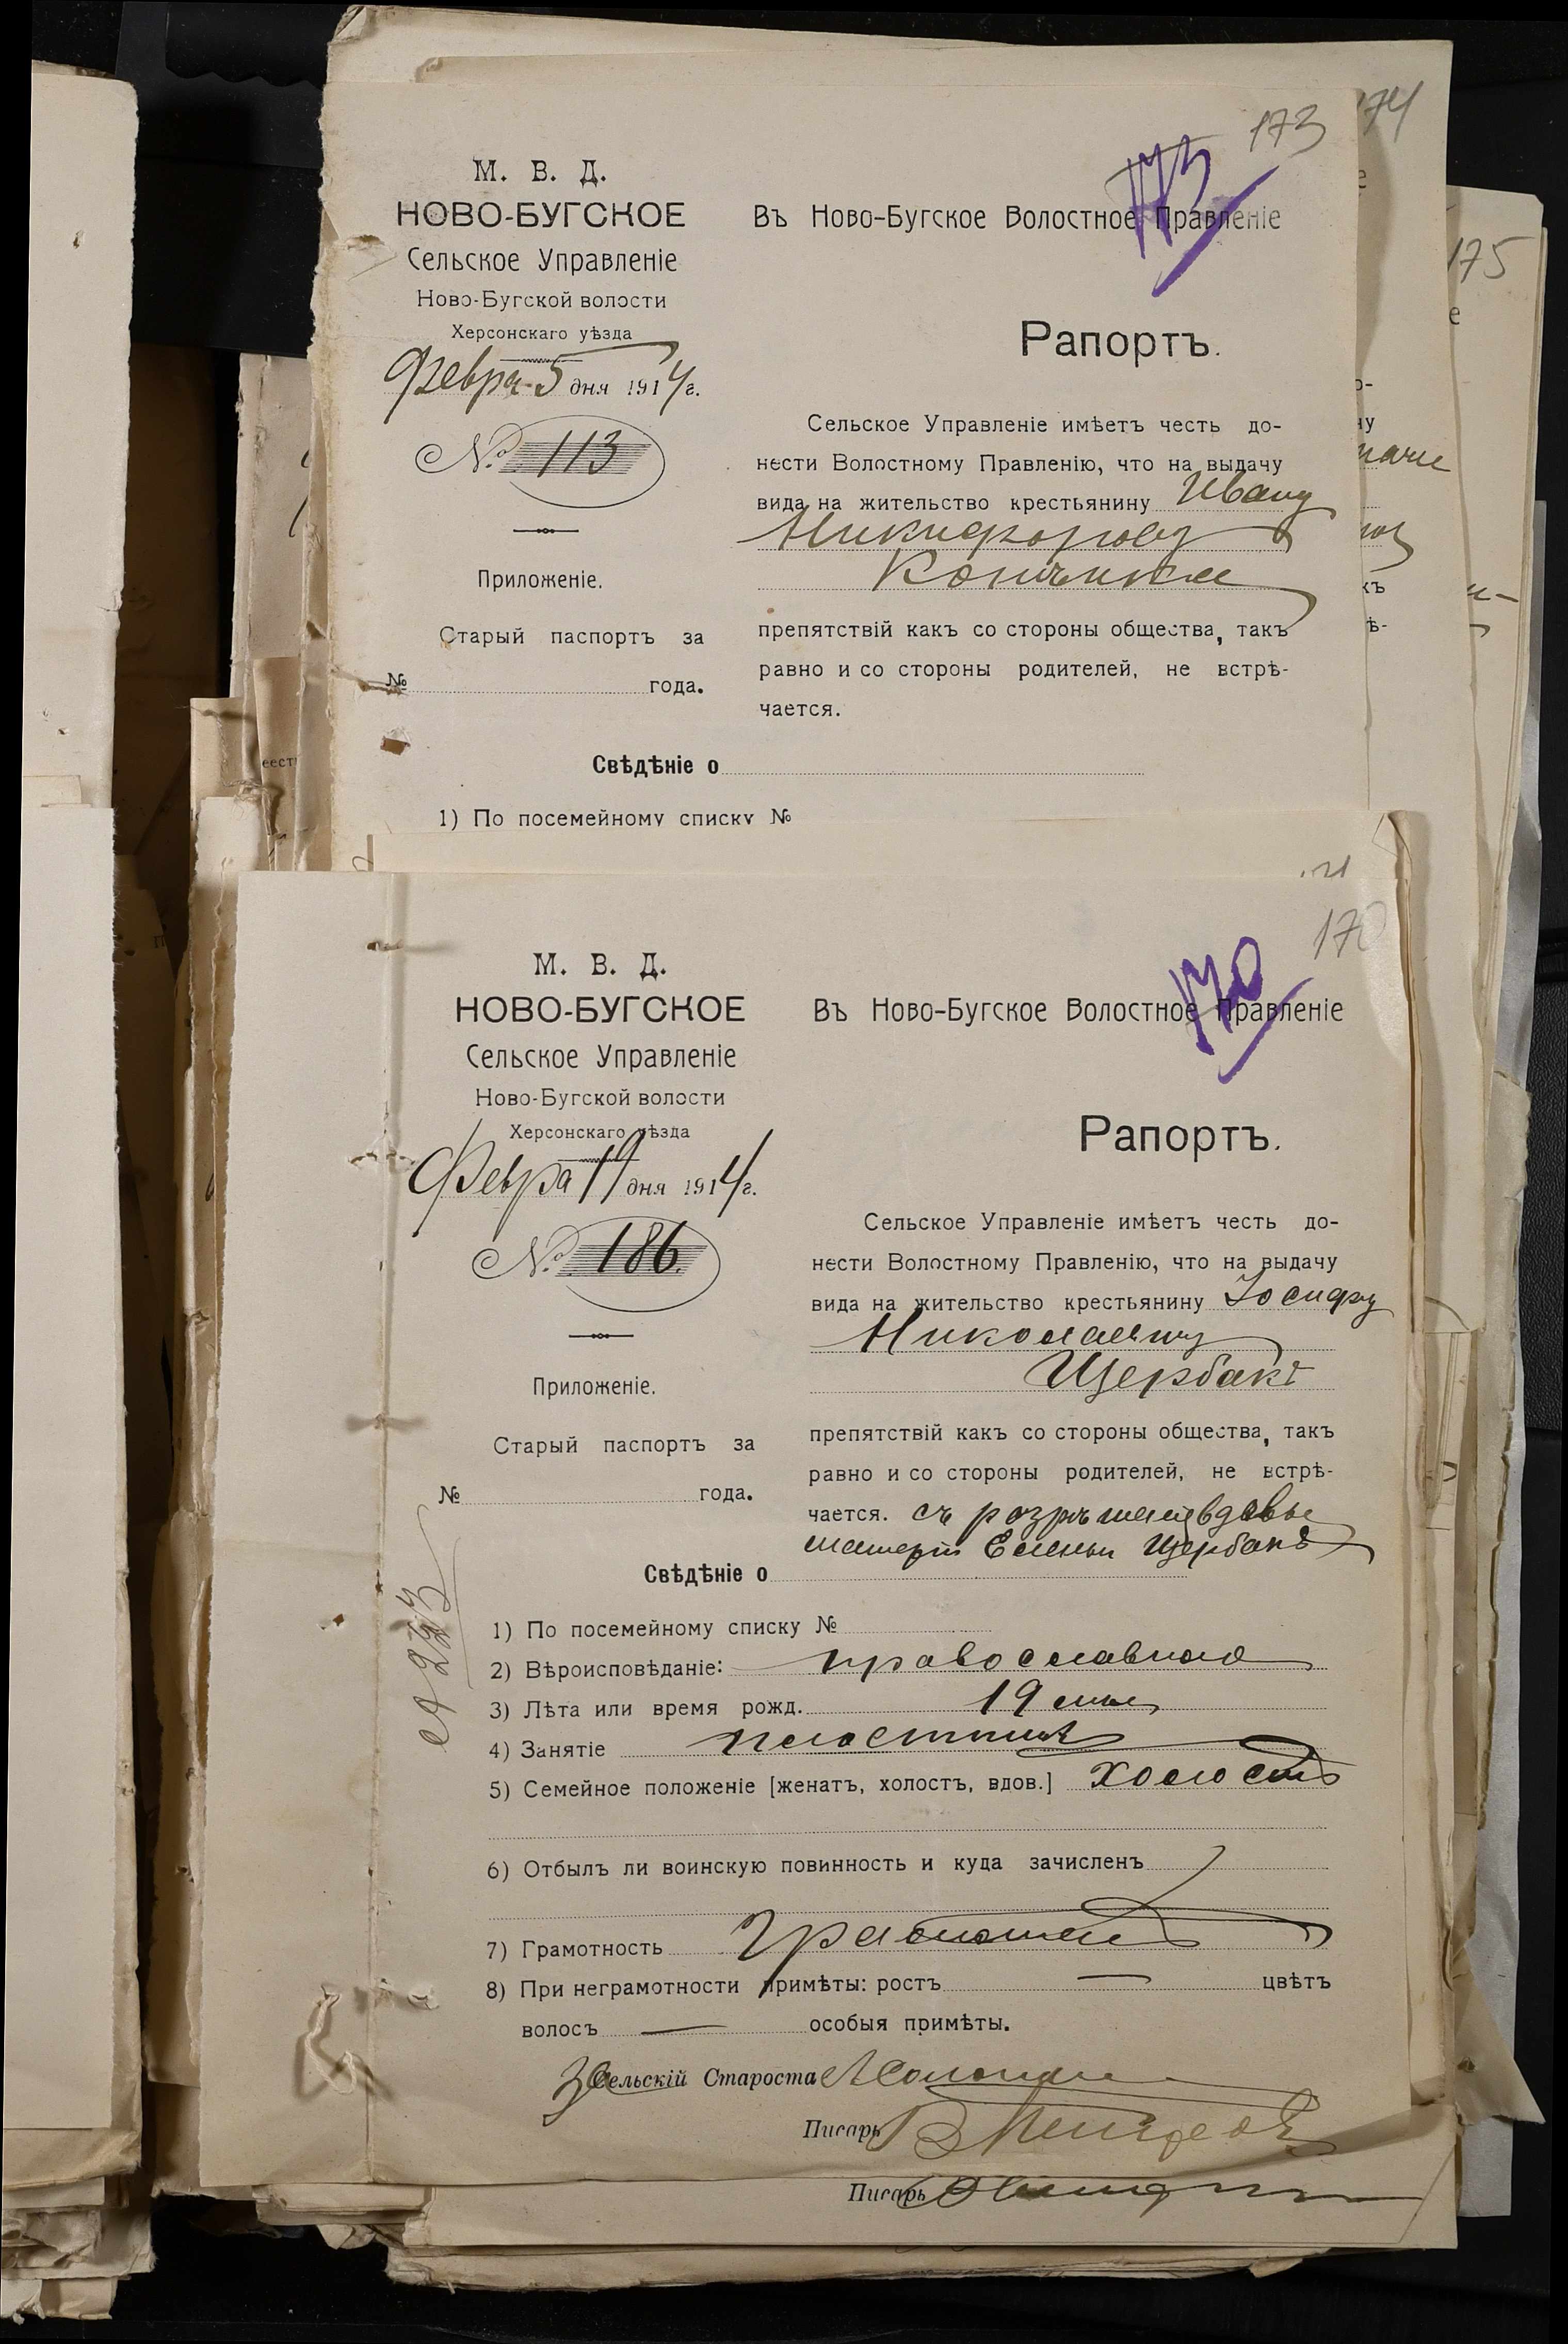 173
174
173
175
М. В. Д.
НОВО-БУГСКОЕ
Сельское Управленіе
Ново-Бугской волости
Херсонскаго уѣзда
Февра 5 дня 1914г.
№ 113
Приложеніе.
Старый паспортъ за
№ года.
Въ Ново-Бугское Волостное Правленіе
Рапортъ.
Сельское Управленіе имѣетъ честь до-
нести Волостному Правленію, что на выдачу
вида на жительство крестьянину Ивану
Никифорову
препятствій какъ со стороны общества, такъ
равно и со стороны родителей, не встрѣ-
чается.
Свѣдѣніе о
1) По посемейному списку №
170
170
М. В. Д.
НОВО-БУГСКОЕ
Сельское Управленіе
Ново-Бугской волости
Херсонскаго уѣзда
Февра 19 дня 1914г.
№ 186
Приложеніе.
Старый паспортъ за
№ года.
Въ Ново-Бугское Волостное Правленіе
Рапортъ.
Сельское Управленіе имѣетъ честь до-
нести Волостному Правленію, что на выдачу
вида на жительство крестьянину Іосифу
Николаевичу
Щербакъ
препятствій какъ со стороны общества, такъ
равно и со стороны родителей, не встрѣ-
чается. съ вдовы
матери Елены Щербакъ
Свѣдѣніе о
1) По посемейному списку №
2) Вѣроисповѣданіе: православнаго
3) Лѣта или время рожд. 19
4) Занятіе
5) Семейное положеніе [женатъ, холостъ, вдов.] холостъ
6) Отбылъ ли воинскую повинность и куда зачисленъ
7) Грамотность Грамотенъ
8) При неграмотности примѣты: ростъ — цвѣтъ
волосъ — особыя примѣты.
За Сельскій Староста
Писарь
Писарь